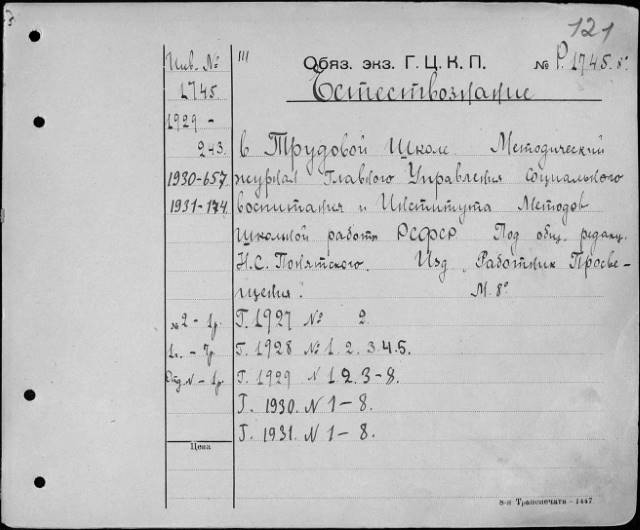 121
Инв. № III Обяз. экз. Г. Ц. К. П. № Р. 1745. 8°
1745 Естествознание
1929 -
243. в Трудовой Школе. Методический
1930-657 журнал Главного Управления Социального
1931-174 воспитания и Института Методов
Школьной работы РСФСР Под общ. редакц.
Н.С. Понятского. Изд. „Работник Просве-
щения". М. 8°
№2 - 1р. Г. 1927 № 2
1р. Г. 1928 № 1. 2. 3.4.5.
Отд. № - 1р. Г. 1929 N 1 2. 3-8.
Г. 1930. N 1-8.
Г. 1931. N 1-8.
Цена
8-я Транспечати - 1447